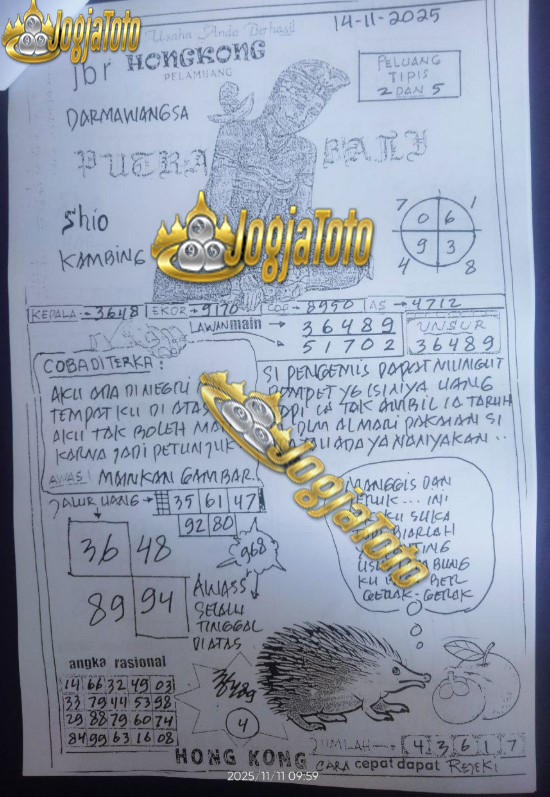 JogjaToto
Usaha Anda Berhasil
14-11-2025
jbr HONGKONG
PELAMUANG
PELUANG
TIPIS
2 DAN 5
DARMAWANGSA
PUTRA BALI
Shio
KAMBING
7 1
0 6
9 3
4 8
JogjaToto
KEPALA → 3648 EKOR → 9170 COP → 8950 AS → 4712
LAWAN main → 36489
51702
UNSUR
36489
COBA DI TERKA :
AKU ADA DI NEGRI
TEMPAT KU DI ATAS
AKU TAK BOLEH
KARNA JADI PETUNJUK
AWAS! MAINKAN GAMBAR
SI PENGEMIS DAPAT MUNGUT
DOMPET YG ISINYA UANG
TAK AMBIL IA TARUH
DLM ALMARI PAKAIAN SI
YA NANYAKAN..
JogjaToto
JALUR UANG → 35 61 47
92 80
36 48
89 94
968
AWASS
SELALU
TINGGAL
DIATAS
MANGGIS DAN
INI
SUKA
BIARLAH
KU
GERAK-GERAK
angka rasional
14 66 32 49 03
33 79 44 53 98
29 88 79 60 74
84 99 63 16 08
36489
4
JUMLAH → 4 3 6 1 7
HONG KONG CARA cepat dapat REJEKI
2025/11/11 09:59